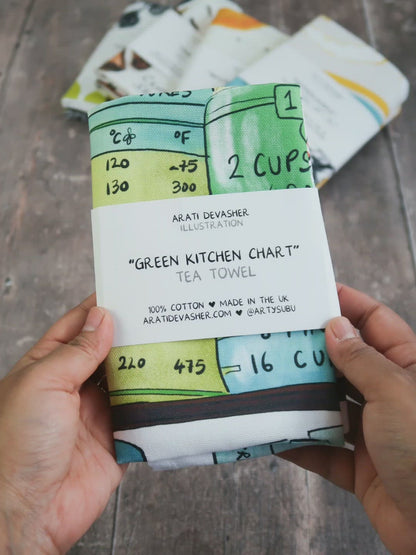 °C °F
1
120 275
130 300
2 CUPS
ARATI DEVASHER
ILLUSTRATION
"GREEN KITCHEN CHART"
TEA TOWEL
100% COTTON ♥ MADE IN THE UK
ARATIDEVASHER.COM ♥ @ARTYSUBU
220 475
16 CU